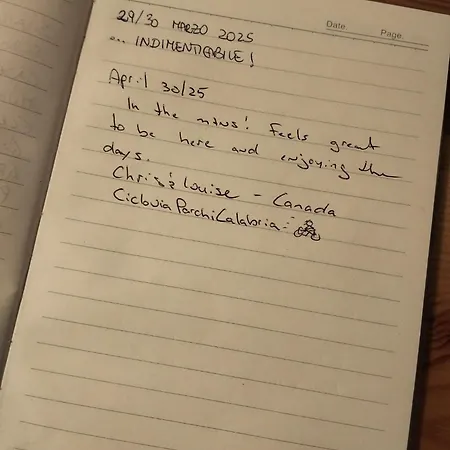 Date. Page.
29/30 MARZO 2025
... INDIMENTICABILE!
April 30/25
In the mtns! Feels great
to be here and enjoying the
days.
Chris & Louise - Canada
Ciclovia Parchi Calabria